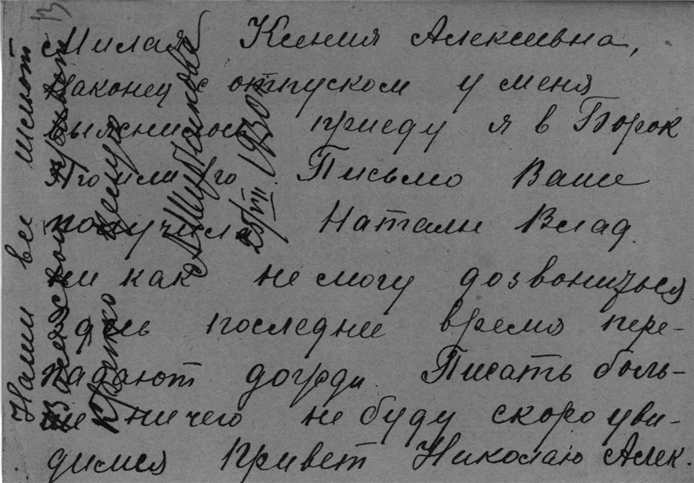 Милая Ксения Алексевна,
Наконец с отпуском у меня
выяснилось приеду я в Борок
Письмо Ваше
получила Натали Влад.
ни как не могу дозвониться
здесь последнее время пере-
падают дожди. Писать боль-
ше ничего не буду скоро уви-
димся привет Николаю Алек.
Наши все шлют
Вам свой привет
Крепко целую
20/VII 1930 г